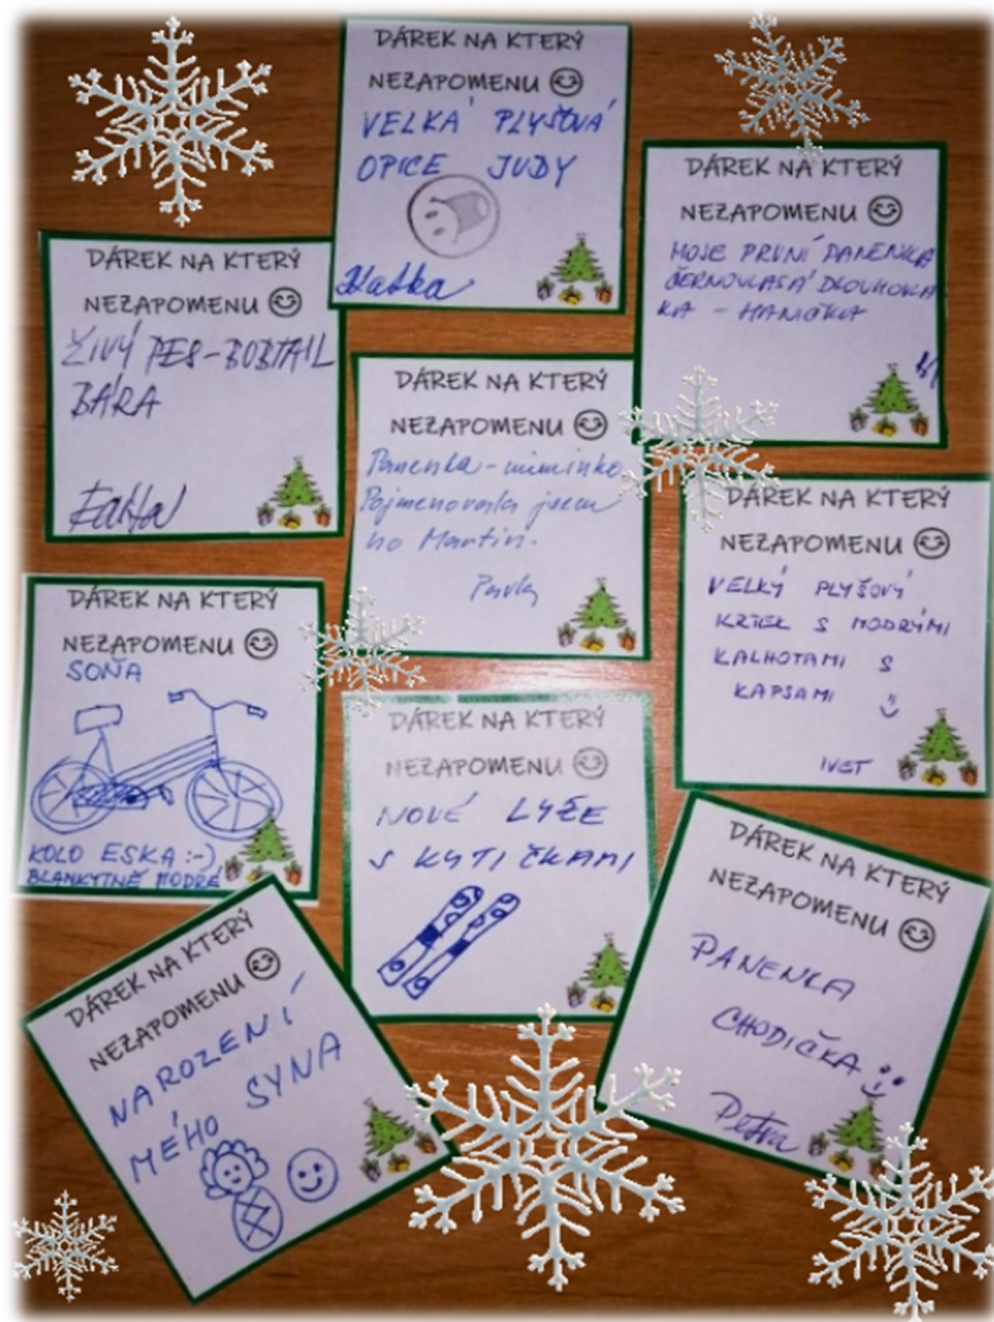 DÁREK NA KTERÝ
NEZAPOMENU
VELKÁ PLYŠOVÁ
OPICE JUDY
DÁREK NA KTERÝ
NEZAPOMENU
MOJE PRVNÍ PANENKA
ČERNOVLASÁ DLOUHOVLÁ
KA - HANIČKA
DÁREK NA KTERÝ
NEZAPOMENU
ŽIVÝ PES-BOBTAIL
BÁRA
DÁREK NA KTERÝ
NEZAPOMENU
Panenka-miminko
Pojmenovala jsem
ho Martin.
Pavla
DÁREK NA KTERÝ
NEZAPOMENU
VELKÝ PLYŠOVÝ
KRTEK S MODRÝMI
KALHOTAMI S
KAPSAMI :)
IVET
DÁREK NA KTERÝ
NEZAPOMENU
SOŇA
KOLO ESKA :-)
BLANKYTNĚ MODRÉ
DÁREK NA KTERÝ
NEZAPOMENU
NOVÉ LYŽE
S KYTIČKAMI
DÁREK NA KTERÝ
NEZAPOMENU
PANENKA
CHODIČKA :)
Petra
DÁREK NA KTERÝ
NEZAPOMENU
NAROZENÍ
MÉHO SYNA